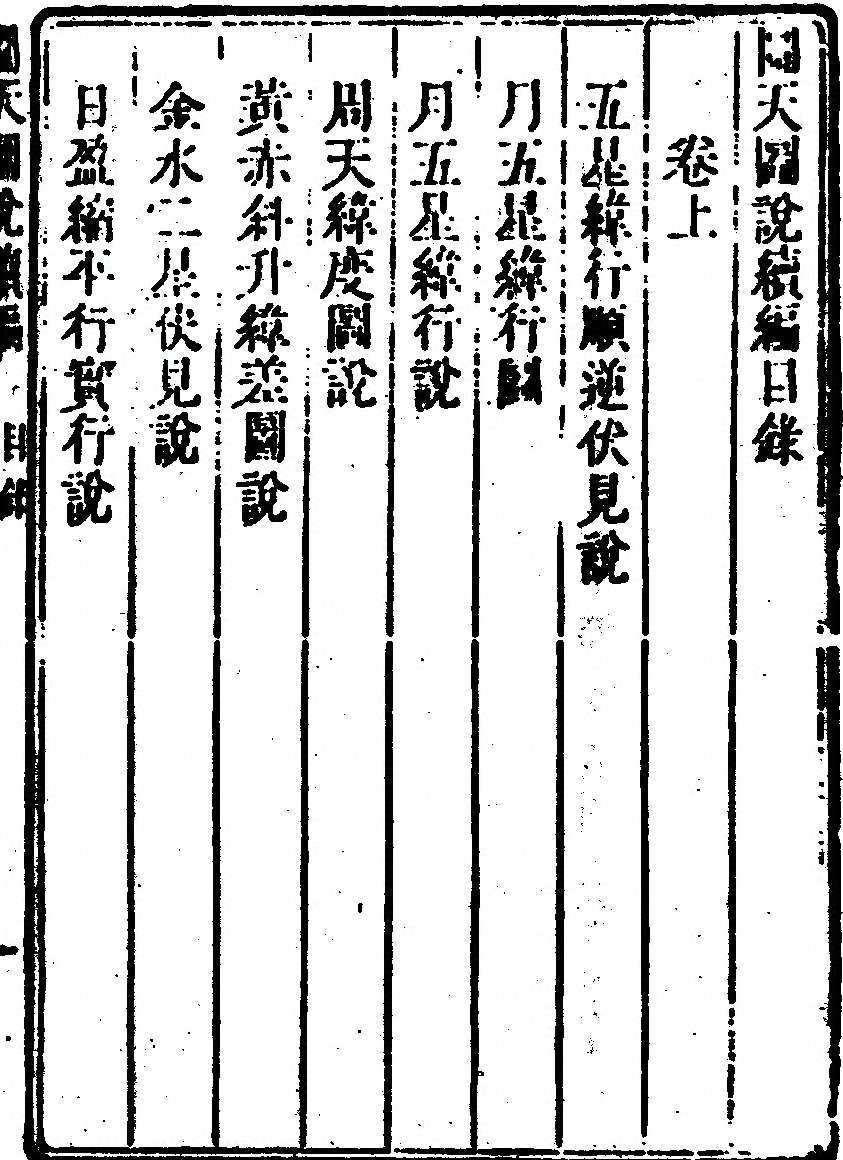 圜天圖說續編目錄
卷上
五星線行順逆伏見說
月五星線行圖
月五星線行說
周天線度圖說
黃赤斜升線差圖說
金水二星伏見說
日盈縮平行實行說
圜天圖說續編 目錄